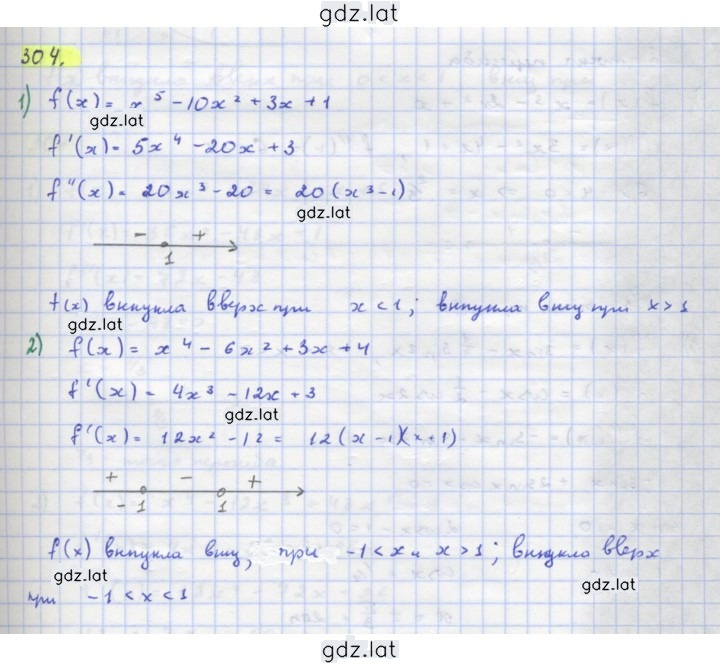 gdz.lat
304.
1) f(x) = x⁵ - 10x² + 3x + 1
gdz.lat
f'(x) = 5x⁴ - 20x + 3
f''(x) = 20x³ - 20 = 20(x³ - 1)
gdz.lat
- +
1
f(x) выпукла вверх при x < 1; выпукла вниз при x > 1
gdz.lat
2) f(x) = x⁴ - 6x² + 3x + 4
f'(x) = 4x³ - 12x + 3
gdz.lat
f'(x) = 12x² - 12 = 12(x - 1)(x + 1)
+ - +
- 1 1
f(x) выпукла вниз, при -1 < x и x > 1; выпукла вверх
gdz.lat gdz.lat
при -1 < x < 1
gdz.lat